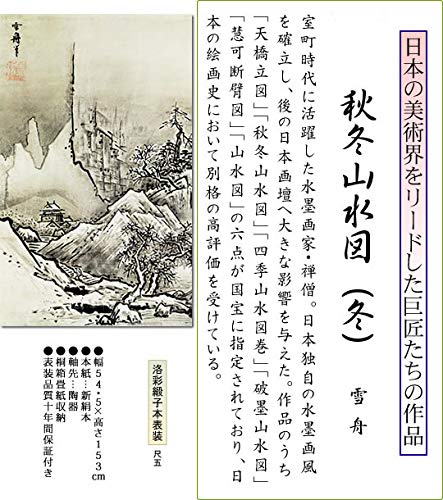 日本の美術界をリードした巨匠たちの作品
秋冬山水図（冬）
雪舟
室町時代に活躍した水墨画家・禅僧。日本独自の水墨画風
を確立し、後の日本画壇へ大きな影響を与えた。作品のうち
「天橋立図」「秋冬山水図」「四季山水図巻」「破墨山水図」
「慧可断臂図」「山水図」の六点が国宝に指定されており、日
本の絵画史において別格の高評価を受けている。
雪舟筆
洛彩緞子本表装 尺五
●幅54.5×高さ153cm
●本紙…新絹本
●軸先…陶器
●桐箱畳紙収納
●表装品質十年間保証付き